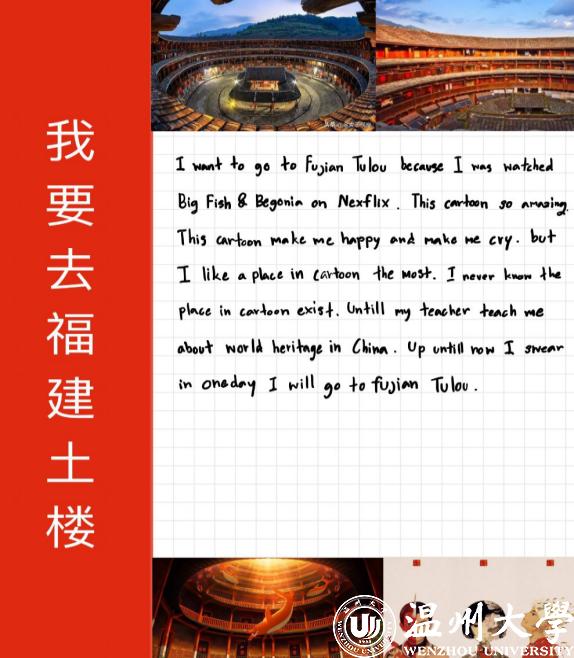 我要去福建土楼
I want to go to Fujian Tulou because I was watched
Big Fish & Begonia on Nexflix. This cartoon so amazing.
This cartoon make me happy and make me cry. but
I like a place in cartoon the most. I never know the
place in cartoon exist. Untill my teacher teach me
about world heritage in China. Up untill now I swear
in oneday I will go to Fujian Tulou.
温州大学
WENZHOU UNIVERSITY